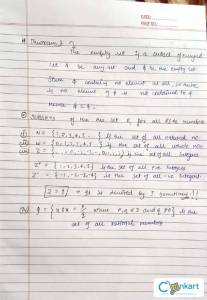 DATE:
PAGE NO.:
# Theorem 2
The empty set is a subset of every set
Let A be any set and ϕ be the empty set
Since ϕ contains no element at all, so there
is no element of ϕ is not contained to A
Hence ϕ ⊂ A.
SUBSETS of the set R for all real numbers
(i) N = {1, 2, 3, 4, 5 ... } is the set of all natural no.
(ii) W = {0, 1, 2, 3, 4, 5, ... } is the set of all whole no.
(iii) Z = is the set of all integers
Z⁺ = {1, 2, 3, 4, 5} is the set of all +ve integers
Z⁻ = {-1, -2, -3, -4} is the set of all -ve integers
It is denoted by I sometimes !!
(iv) where p, q ∈ Z and q ≠ 0} is the
set of all rational numbers
Clankart